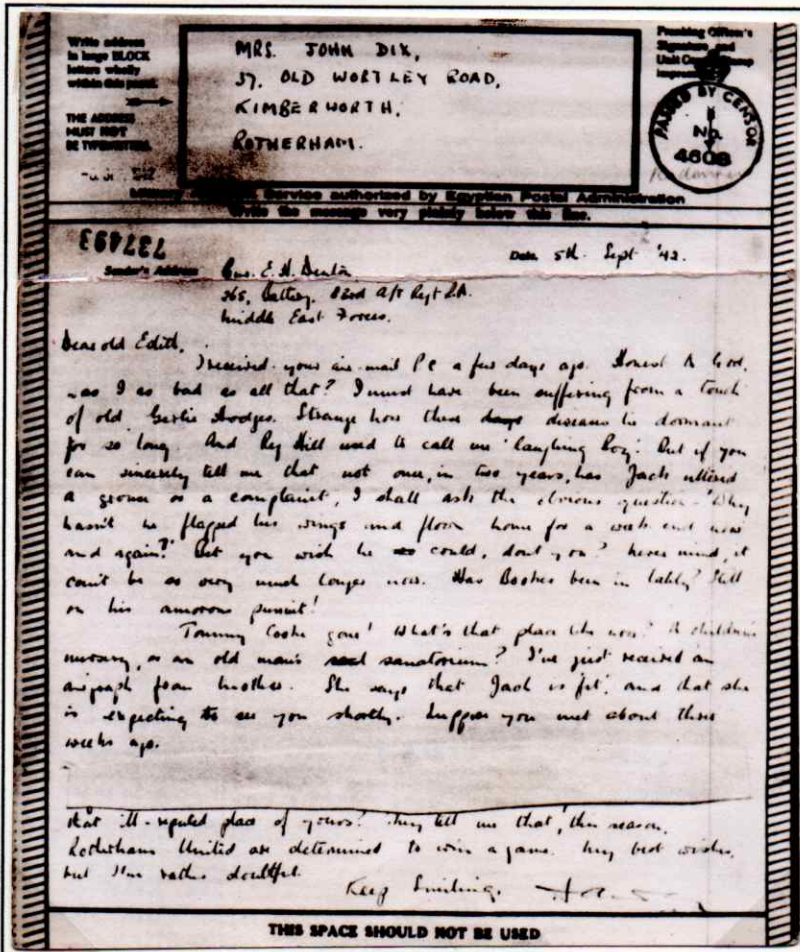 Write address
in large BLOCK
letters wholly
within this panel.
THE ADDRESS
MUST NOT
BE TYPEWRITTEN.
MRS. JOHN DIX,
37, OLD WORTLEY ROAD,
KIMBERWORTH,
ROTHERHAM.
Officer's
Signature and
Unit
PASSED BY CENSOR
No.
4608
Service authorized by Egyptian Postal Administration
Write the message very plainly below this line.
737493
Date 5th Sept '42.
Sender's Address Gnr. E. H. Denton
265, Battery, A/T Regt R.A.
Middle East Forces.
Dear old Edith,
I received your air-mail PC a few days ago. Honest to God,
was I as bad as all that? I must have been suffering from a touch
of old Hodges. Strange how these days diseases lie dormant
for so long. And Reg Hill used to call me 'laughing boy'. But if you
can sincerely tell me that not once, in two years, has Jack uttered
a grouse or a complaint, I shall ask the obvious question - 'Why
hasn't he flapped his wings and flown home for a week end now
and again?' Bet you wish he could, don't you? Never mind, it
can't be so very much longer now. Has been in lately? Still
on his amorous pursuit!
Tommy Cooke gone! What's that place like now? A children's
nursery, or an old man's sanatorium? I've just received an
airgraph from mother. She says that Jack is fit, and that she
is expecting to see you shortly. Suppose you met about three
weeks ago.
that ill-reputed place of yours? They tell me that, this season,
Rotherham United are determined to win a game. My best wishes,
but I'm rather doubtful.
Keep Smiling.
THIS SPACE SHOULD NOT BE USED